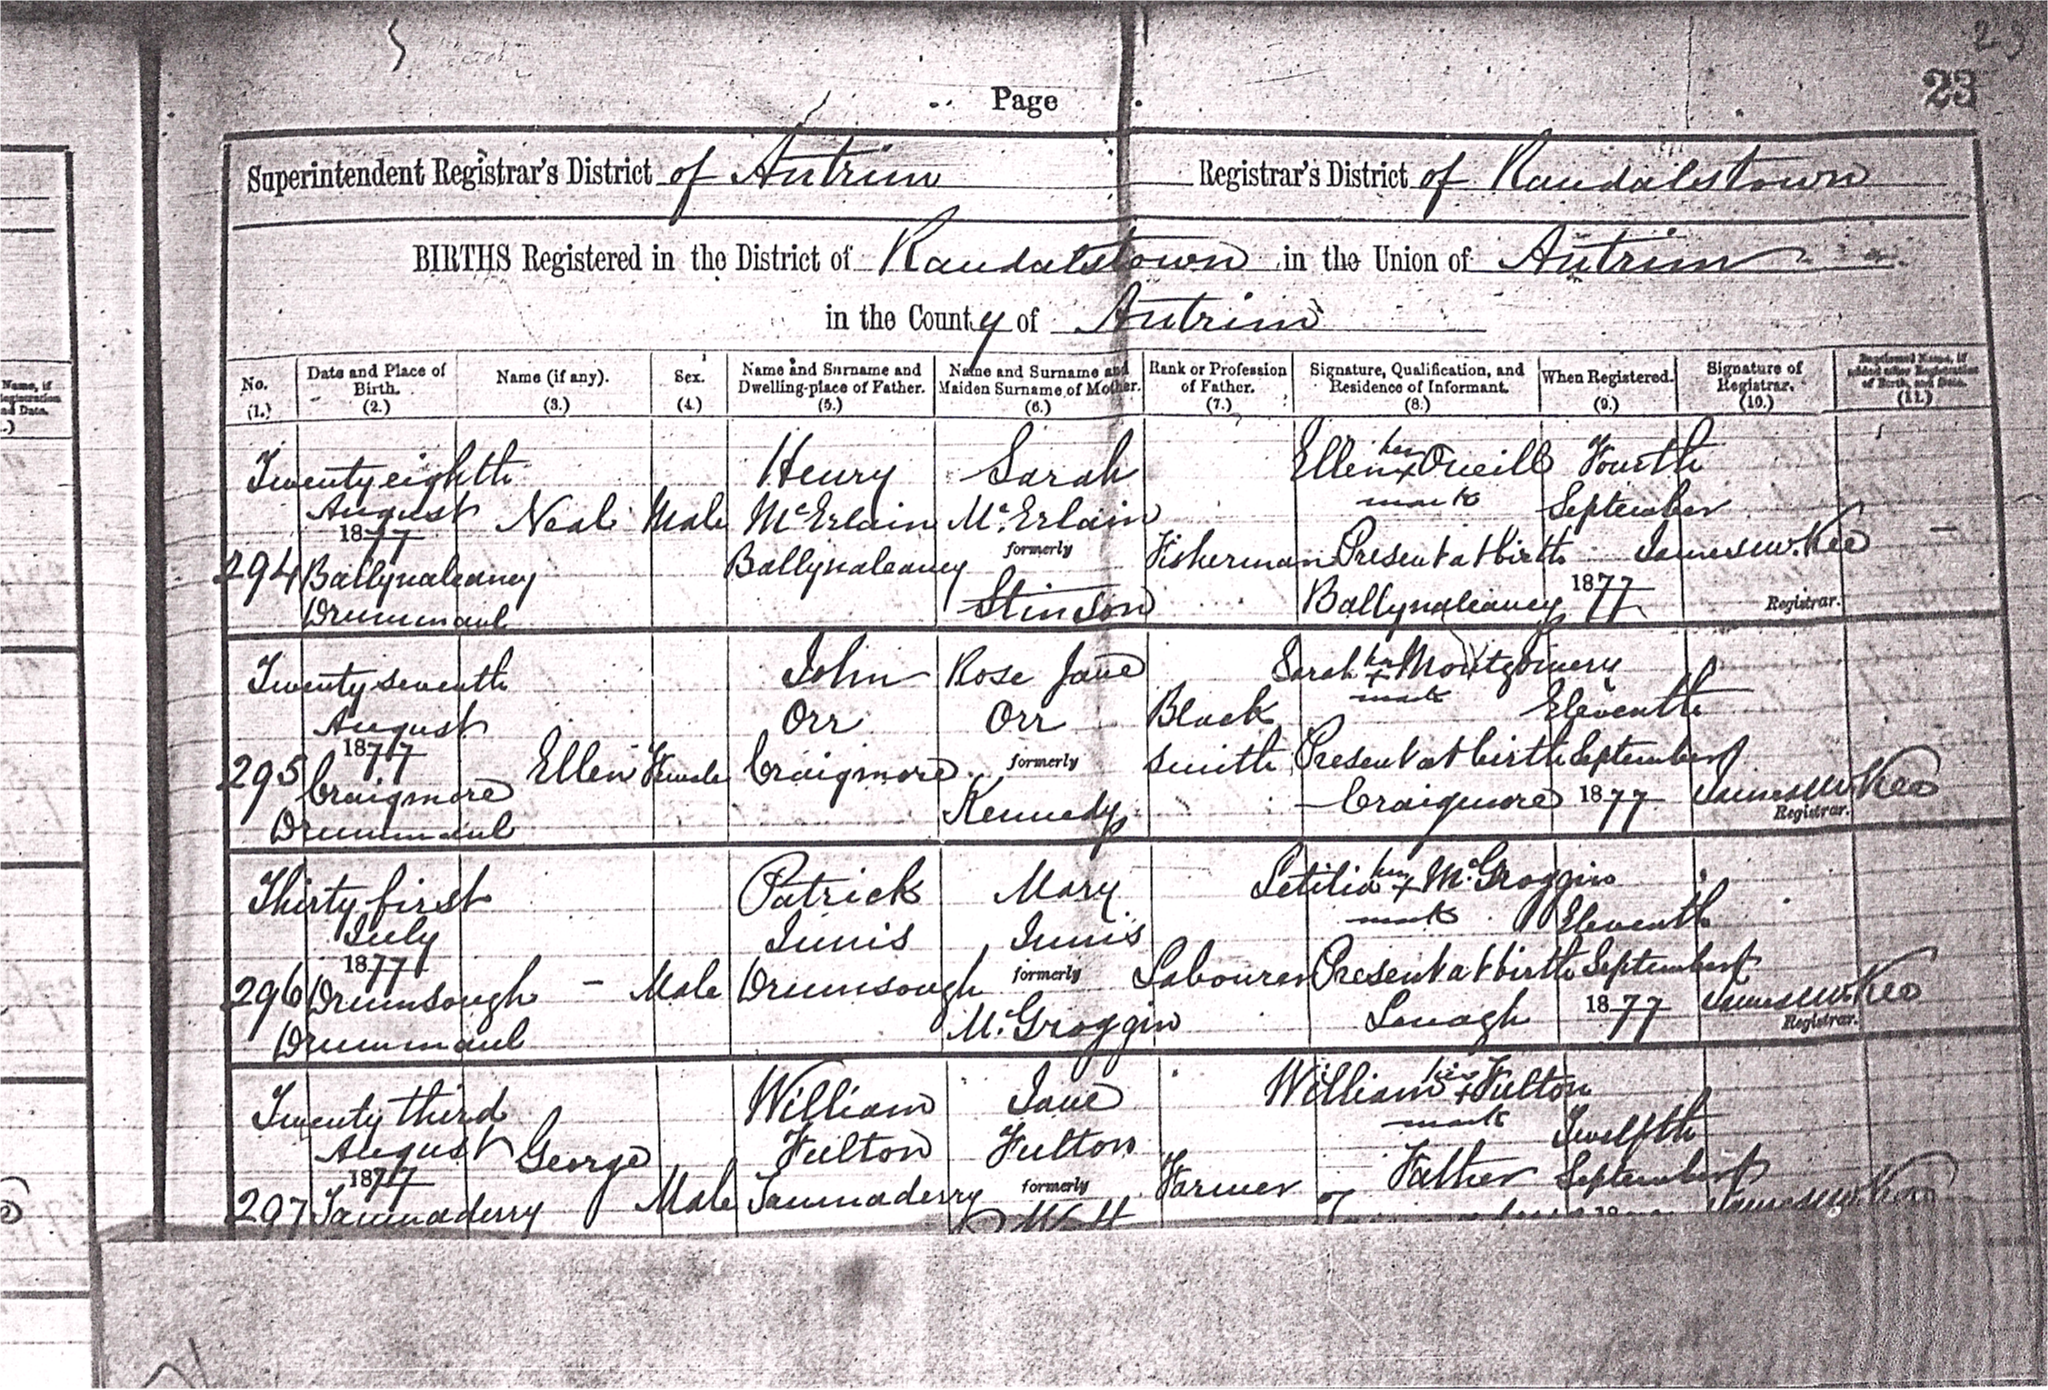 23
23
Page
Superintendent Registrar's District of Antrim Registrar's District of Randalstown
BIRTHS Registered in the District of Randalstown in the Union of Antrim
in the County of Antrim
No. (1.) Date and Place of Birth. (2.) Name (if any). (3.) Sex. (4.) Name and Surname and Dwelling-place of Father. (5.) Name and Surname and Maiden Surname of Mother. (6.) Rank or Profession of Father. (7.) Signature, Qualification, and Residence of Informant. (8.) When Registered. (9.) Signature of Registrar. (10.) Baptismal Name, if added after Registration of Birth, and Date. (11.)
Twentyeighth Henry Sarah Ellen her x Oneill Fourth
August Neal Male McErlain McErlain mark September
1877 Ballynaleaney formerly Fisherman Present at birth James W. Kee
294 Ballynaleaney Stinson Ballynaleaney 1877 Registrar.
Drummaul
Twenty seventh John Rose Jane Sarah her x Montgomery
August Orr Orr Black mark Eleventh
1877 Ellen Female Craigmore formerly smith Present at birth September
295 Craigmore Kennedy Craigmore 1877 James W Kee
Drummaul Registrar.
Thirty first Patrick Mary Letitia her x McGroggin
July Innis Innis mark Eleventh
1877 - Male Drumsough formerly Labourer Present at birth September
296 Drumsough McGroggin Lenagh 1877 James W. Kee
Drummaul Registrar.
Twenty third William Jane William his x Fulton
August George Fulton Fulton mark Twelfth
1877 Male Tamnaderry formerly Farmer Father September
297 Tamnaderry James W Kee